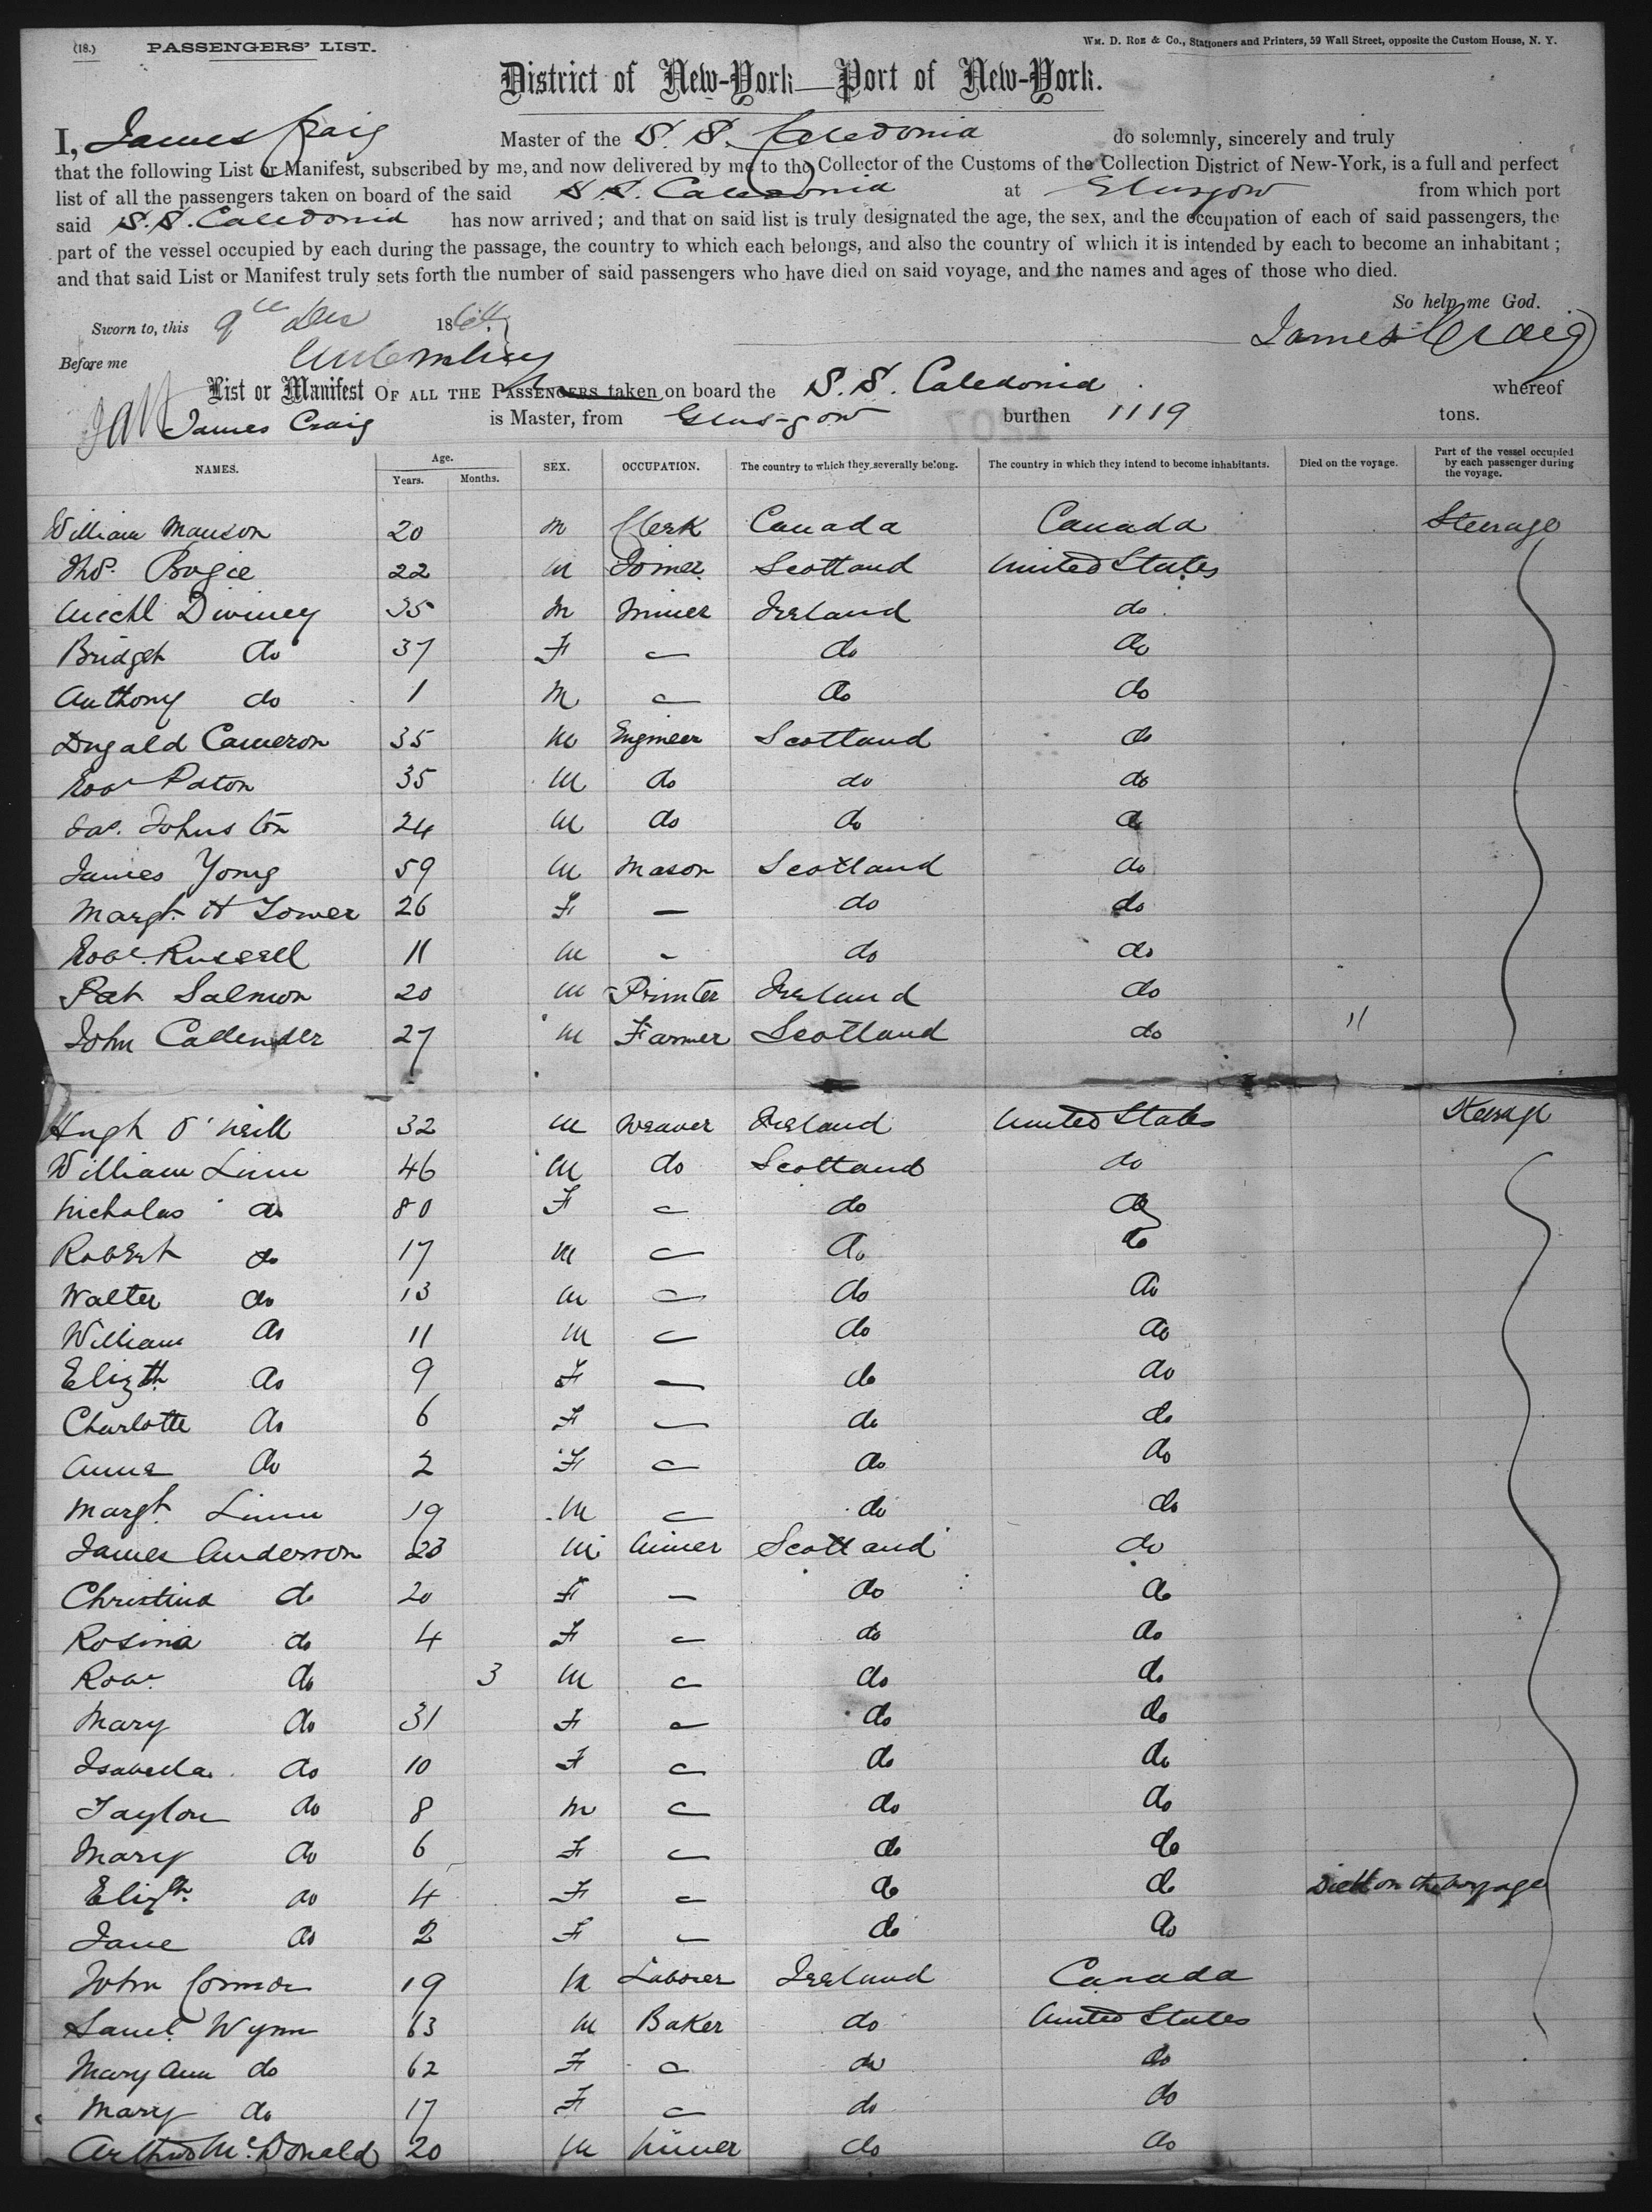 (18.) PASSENGERS' LIST. WM. D. ROE & Co., Stationers and Printers, 59 Wall Street, opposite the Custom House, N. Y.
District of New-York—Port of New-York.
I, James Craig Master of the S. S. Caledonia do solemnly, sincerely and truly
that the following List or Manifest, subscribed by me, and now delivered by me to the Collector of the Customs of the Collection District of New-York, is a full and perfect
list of all the passengers taken on board of the said S. S. Caledonia at Glasgow from which port
said S. S. Caledonia has now arrived; and that on said list is truly designated the age, the sex, and the occupation of each of said passengers, the
part of the vessel occupied by each during the passage, the country to which each belongs, and also the country of which it is intended by each to become an inhabitant;
and that said List or Manifest truly sets forth the number of said passengers who have died on said voyage, and the names and ages of those who died.
So help me God.
Sworn to, this 9th Dec 1864 James Craig
Before me
List or Manifest OF ALL THE PASSENGERS taken on board the S. S. Caledonia whereof
James Craig is Master, from Glasgow burthen 1119 tons.
NAMES. Age. Years. Months. SEX. OCCUPATION. The country to which they severally belong. The country in which they intend to become inhabitants. Died on the voyage. Part of the vessel occupied by each passenger during the voyage.
William Manson 20 M Clerk Canada Canada Steerage
Thos. Bogie 22 M Joiner Scotland United States
Michl Diviney 35 M Miner Ireland do
Bridget do 37 F — do do
Anthony do 1 M — do do
Dugald Cameron 35 M Engineer Scotland do
Robt Paton 35 M do do do
Jas. Johnston 24 M do do do
James Yong 59 M Mason Scotland do
Margt. H Tower 26 F — do do
Robt. Russell 11 M - do do
Pat Salmon 20 M Printer Ireland do
John Callender 27 M Farmer Scotland do "
Hugh O'Neill 32 M Weaver Ireland United States Steerage
William Linn 46 M do Scotland do
Nicholas do 80 F — do do
Robert do 17 M — do do
Walter do 13 M — do do
William do 11 M — do do
Elizth do 9 F — do do
Charlotte do 6 F — do do
Anna do 2 F — do do
Margt. Linn 19 M — do do
James Anderson 23 M Miner Scotland do
Christina do 20 F — do do
Rosina do 4 F — do do
Robt. do 3 M — do do
Mary do 31 F — do do
Isabella do 10 F — do do
Taylor do 8 M — do do
Mary do 6 F — do do
Elizth. do 4 F — do do Died on the voyage
Jane do 2 F — do do
John Connor 19 M Laborer Ireland Canada
Saml. Wynn 63 M Baker do United States
Mary Ann do 62 F — do do
Mary do 17 F — do do
Arthur McDonald 20 M Miner do do